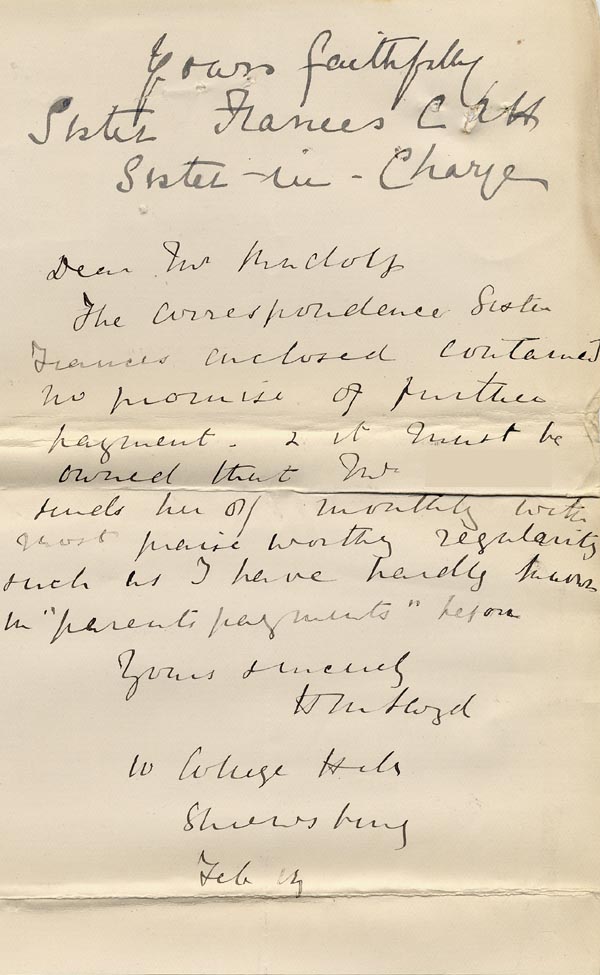 Yours faithfully
Sister Frances C
Sister-in-Charge
Dear Mr Rudolf
The correspondence Sister
Frances enclosed contained
no promise of further
payment. & it must be
owned that Mr
sends her 5/ monthly with
most praiseworthy regularity
such as I have hardly known
in "parents payments" before
Yours sincerely
H M Lloyd
10 College Hill
Shrewsbury
Feb